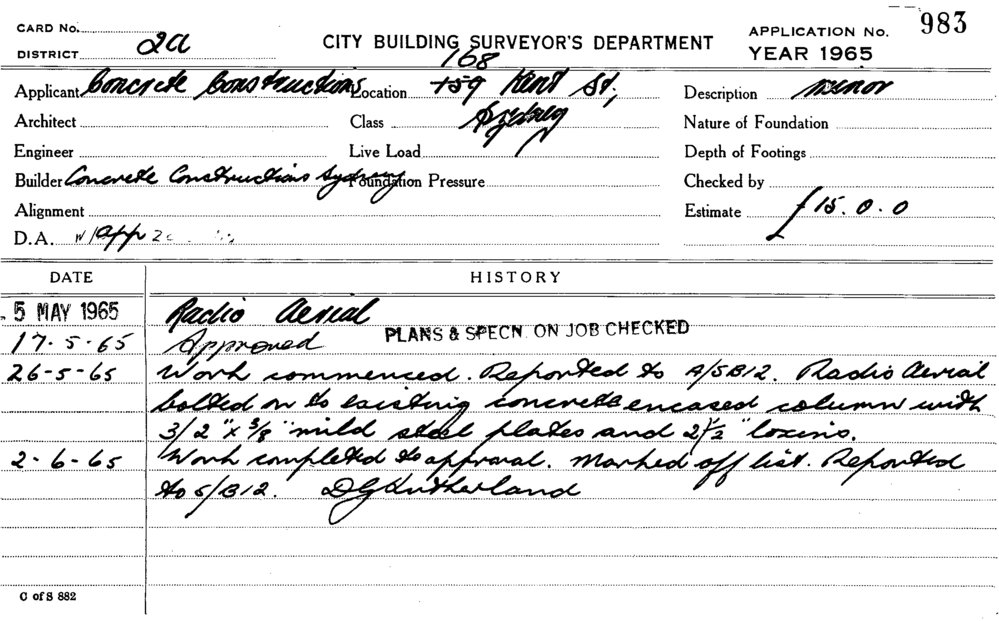 CARD No.
DISTRICT 2a
CITY BUILDING SURVEYOR'S DEPARTMENT
APPLICATION No. 983
YEAR 1965
168
Applicant Concrete Constructions Location 159 Kent St,
Description minor
Architect
Class Sydney
Nature of Foundation
Engineer
Live Load
Depth of Footings
Builder Concrete Constructions Sydney Foundation Pressure
Checked by
Alignment
Estimate £15.0.0
D.A. App
DATE HISTORY
5 MAY 1965 Radio Aerial
PLANS & SPECN. ON JOB CHECKED
17-5-65 Approved
26-5-65 Work commenced. Reported to A/SB12. Radio Aerial
bolted on to existing concrete encased column with
3/2" x 3/8" mild steel plates and 2 1/2"
2-6-65 Work completed to approval. Marked off list. Reported
to S/B12. DG Sutherland
C of S 882